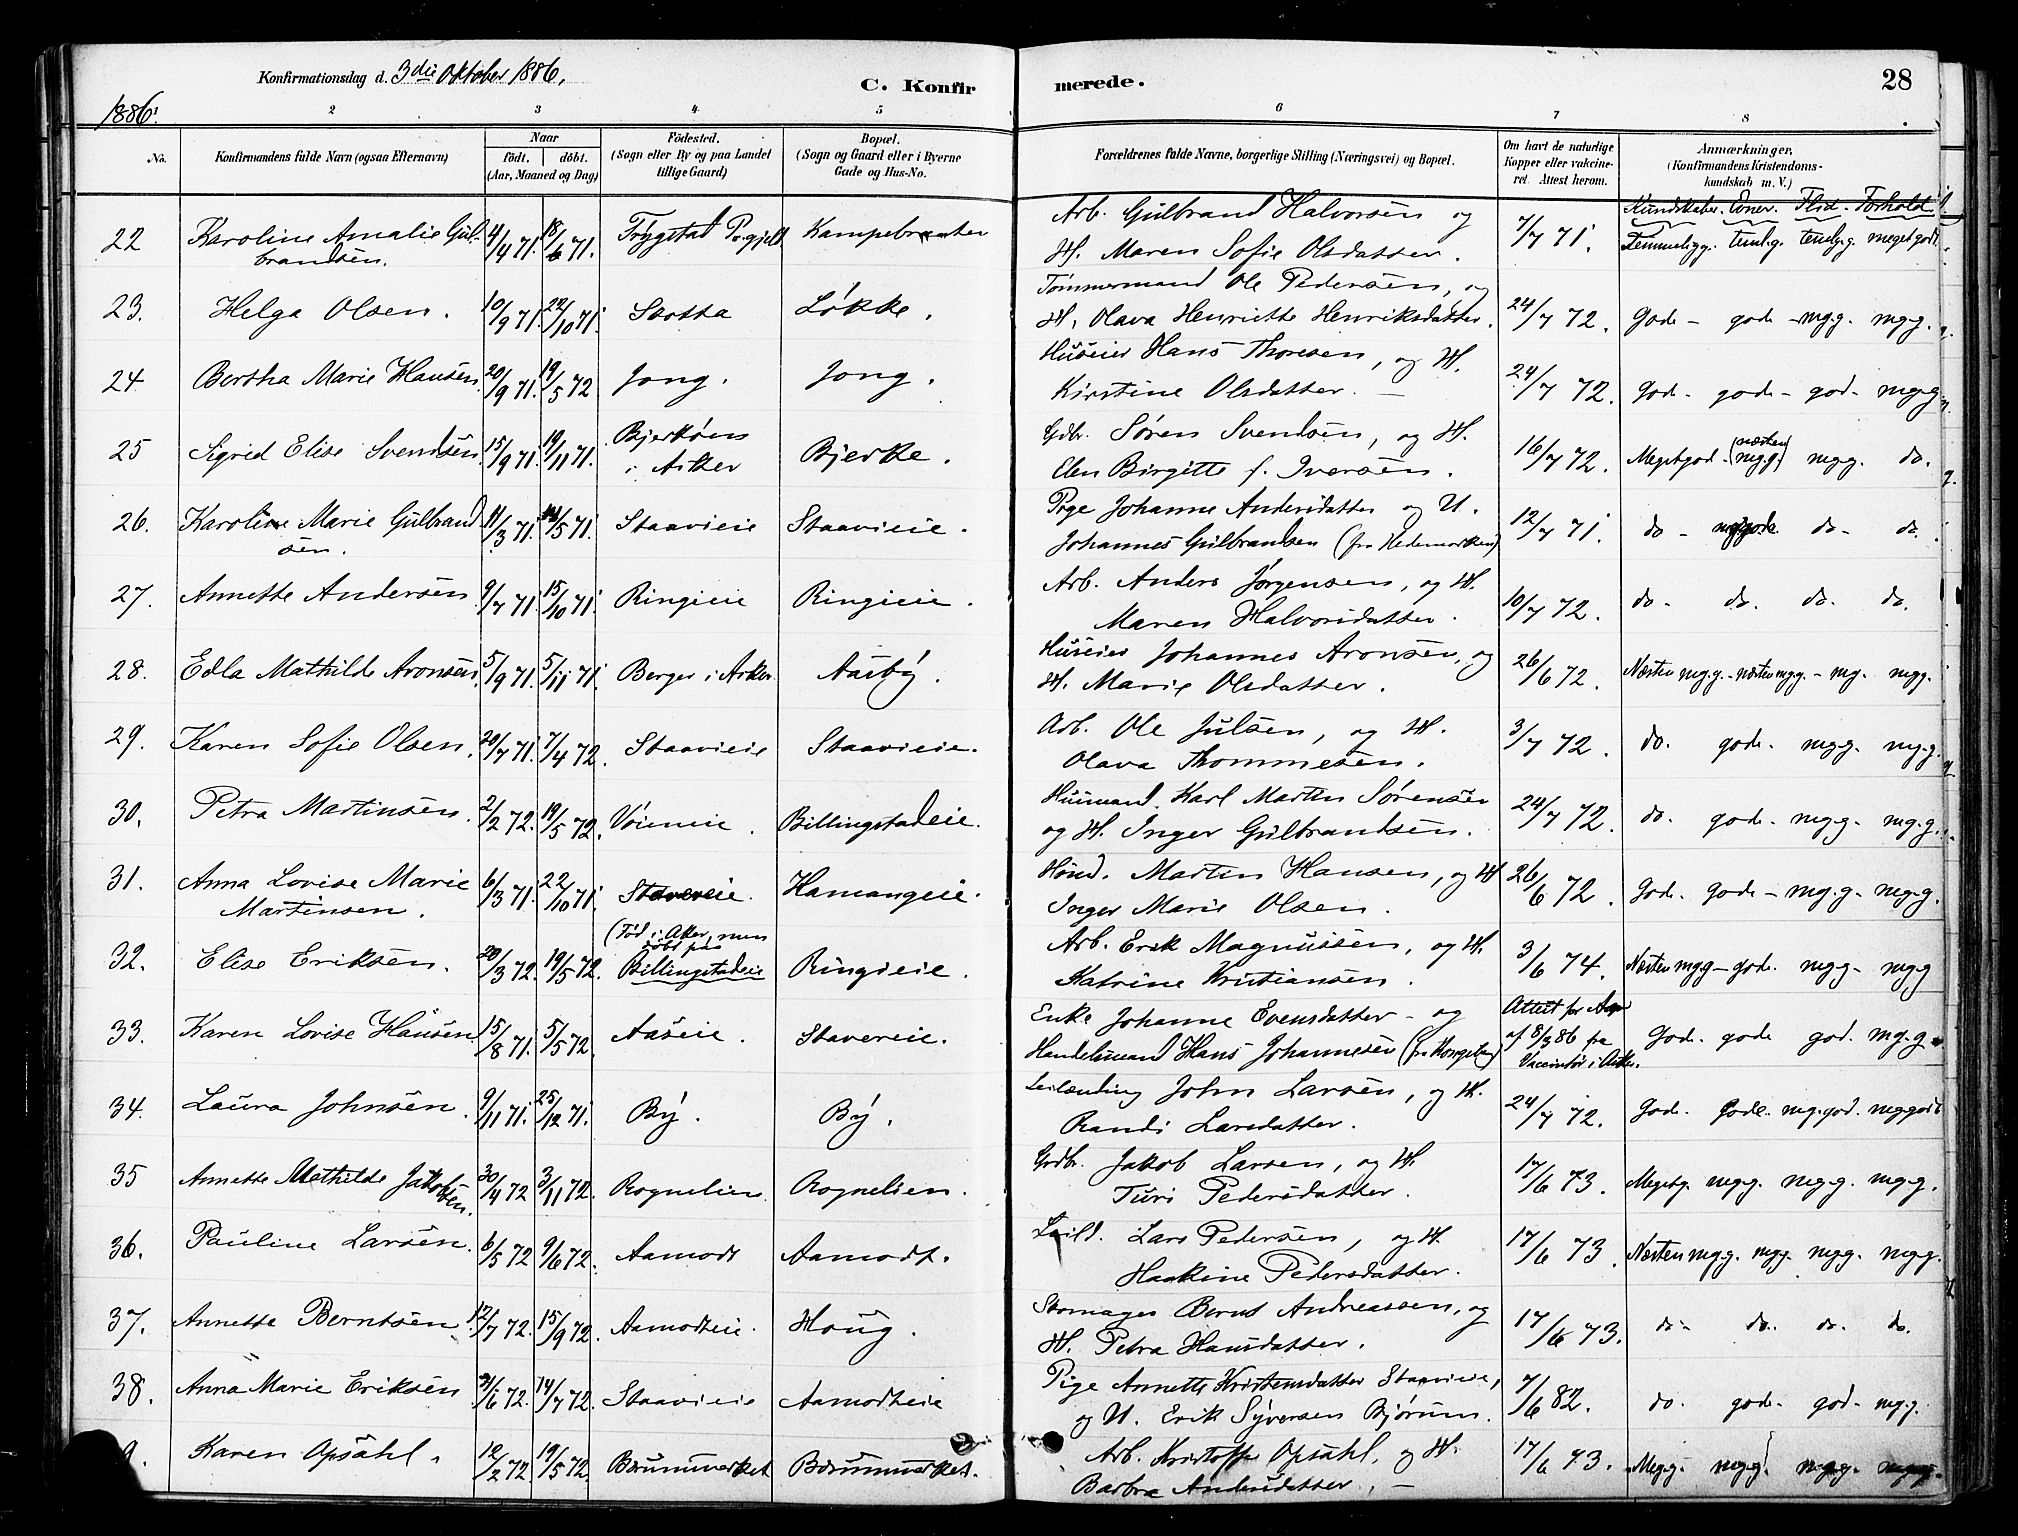 Konfirmationsdag d. 3die Oktober 1886.
C. Konfirmerede.
28
1886.
2 3 4 5 6 7 8
No.
Konfirmandens fulde Navn (ogsaa Efternavn)
Naar
födt. döbt.
(Aar, Maaned og Dag)
Födested.
(Sogn eller By og paa Landet
tillige Gaard)
Bopæl.
(Sogn og Gaard eller i Byerne
Gade og Hus-No.
Forældrenes fulde Navne, borgerlige Stilling (Næringsvei) og Bopæl.
Om havt de naturlige
Kopper eller vakcine-
ret. Attest herom.
Anmærkninger.
(Konfirmandens Kristendoms-
kundskab m. V.)
Kundskaber. Evner. Flid. Forhold.
22 Karoline Amalie Gul- 4/4 71. 18/6 71. Trygstad Prgjeld Kampebraaten Arb. Gulbrand Halvorsen og 7/7 71. Temmeligg. teml.g. temlg.g. meget godt.
brandsen. H. Maren Sofie Olsdatter.
23. Helga Olsen. 10/9 71. 22/10 71. Skotta Løkke. Tømmermand Ole Pedersen, og 24/7 72. Gode - gode - mg.g. mg.g.
H. Olava Henriette Henriksdatter.
24. Bertha Marie Hansen 20/9 71. 19/5 72 Jong. Jong. Huseier Hans Thoresen, og H. 24/7 72. God. - gode - god. - mg.g.
Kirstine Olsdatter. -
25 Sigrid Elise Svendsen 15/9 71. 19/11 71. Bjerkøen Bjerke. Gdbr. Søren Svendsen, og H. 16/7 72. Megetgod. (næsten mg.g.) mg.g. do.
i Asker Elen Birgitte f. Iversen.
26. Karoline Marie Gulbrand 11/3 71. /5 71. Staavieie Staavieie. Pige Johanne Andersdatter og U. 12/7 71. do - gode do - do.
sen. Johannes Gulbrandsen (fra Hedemarken)
27. Annette Andersen 9/7 71. 15/10 71. Ringieie Ringieie. Arb. Anders Jørgensen, og H. 10/7 72. do - do. do. do.
Maren Halvorsdatter.
28. Edla Mathilde Aronsen 5/9 71. 5/11 71. Berger i Asker Aasby. Huseier Johannes Aronsen, og 26/6 72. Næsten mg.g. - næsten mg.g. - mg. mgg.
H. Marie Olsdatter.
29. Karen Sofie Olsen. 20/7 71. 7/4 72. Staavieie Staavieie. Arb. Ole Julsen, og H. 3/7 72. do. gode. mg.g. mg.g.
Olava Thommesen.
30. Petra Martinsen. 2/2 72. 19/5 72. Vøieneie. Billingstadeie. Husmand. Karl Martin Sørensen 24/7 72. do. god. - mg.g. mg.g.
og H. Inger Gulbrandsen.
31. Anna Lovise Marie 6/3 71. 22/10 71. Stavereie. Hamangeie. Hsmd. Martin Hansen, og H 26/6 72. God. gode - mg.g. mg.g.
Martinsen. Inger Marie Olsen.
32. Elise Eriksen. 20/3 72. 19/5 72. (Fød i Aker, men Ringieie. Arb. Erik Magnussen, og H. 3/6 74. Næsten mgg - gode. mg.g - mg.g
døbt paa
Billingstadeie Katrine Kristiansen.
33. Karen Lovise Hansen 15/8 71. 5/5 72. Aaseie. Stavereie. Enke Johanne Evensdatter - og Attest for
Handelsmand Hans Johannesen (fra Kongsberg) af 8/3 86 fra God. gode god. mg.g.
Vaccinatør i Asker.
34. Laura Johnsen. 9/11 71. 25/12 71. By. By. Leilænding John Larsen, og H. 24/7 72. God. Gode. mg.god. mg.godt
Randi Larsdatter.
35 Annette Mathilde Jakobsen. 30/4 72 3/11 72. Rognelien Rognelien. Grdbr. Jakob Larsen, og H. 17/6 73. Megetg. mg.g. mg.g. mg.g.
Turi Pedersdatter.
36. Pauline Larsen. 6/5 72 9/6 72. Aamodt Aamodt. Leild. Lars Pedersen, og H. 17/6 73. Næsten mg.g. mg.g. mg.g. mg.g.
Haakine Pedersdatter.
37. Annette Berntsen. 12/7 72. 15/9 72. Aamodteie. Houg. Skomager Bernt Andreassen, og 17/6 73. do - do. do. do.
H. Petra Hansdatter.
38. Anna Marie Eriksen /6 72. 14/7 72. Staavieie Aamodteie Pige Annette Kristensdatter Staavieie, 7/6 82. do. god. god. mg.g.
og U. Erik Syversen Bjørum.
9. Karen Opsahl. 12/2 72 19/5 72. Bærumsverket Bærumsverket. Arb. Kristoffer Opsahl, og H. 17/6 73. Meg.g. mg.g. mg.g. mg.g.
Barbra Andersdatter, -